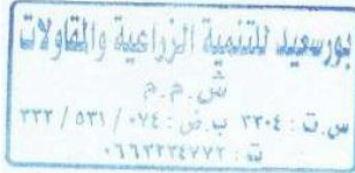 بورسعيد للتنمية الزراعية والمقاولات
ش.م.م
س.ت : ٣٣٠٤ ب.ض : ٠٧٤ / ٥٣١ / ٣٣٣
ت : ٠٦٦٣٣٣٤٧٧٢